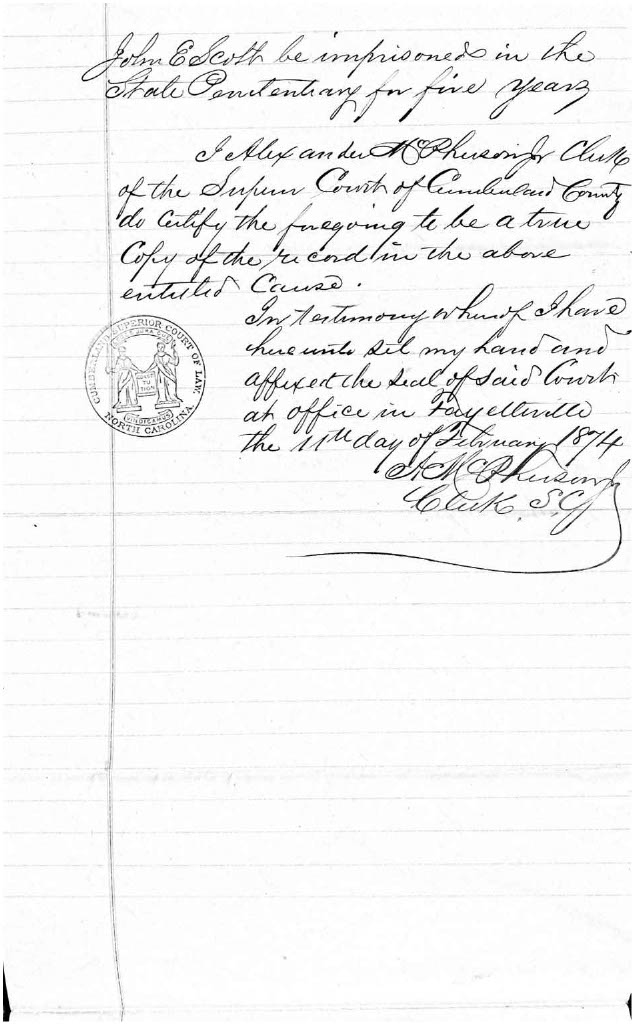 John E Scott be imprisoned in the
State Penitentiary for five years
I Alexander McPherson Jr Clerk
of the Superior Court of Cumberland County
do Certify the foregoing to be a true
Copy of the record in the above
entitled Cause.
In testimony whereof I have
hereunto set my hand and
affixed the seal of said Court
at office in Fayetteville
the 11th day of February 1874
A. McPherson Jr
Clerk S.C.
CUMBERLAND SUPERIOR COURT OF LAW.
NORTH CAROLINA.